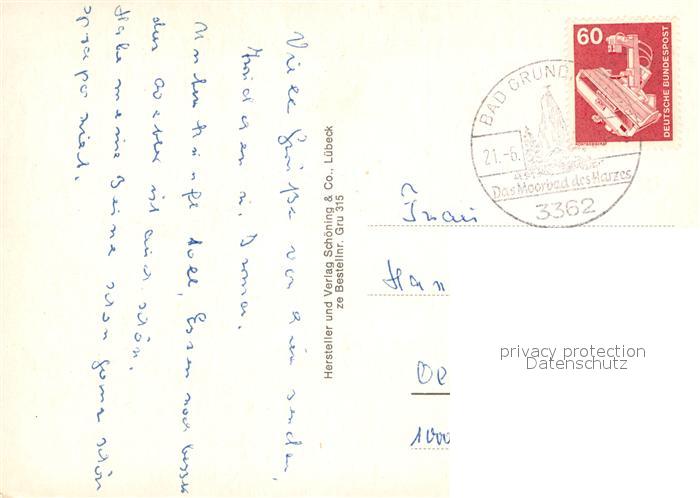 Viele Grüße von hier senden,
Unterkunft toll, Essen noch besser
das Wetter ist auch schön.
Habe meine Beine schon ganz schön
Hersteller und Verlag Schöning & Co., Lübeck
ze Bestellnr. Gru 315
60
DEUTSCHE BUNDESPOST
BAD GRUND
21.-6.
Das Moorbad des Harzes
3362
Han
1000
privacy protection
Datenschutz